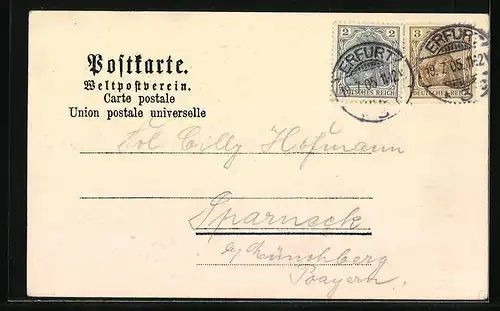 Postkarte.
Weltpostverein.
Carte postale
Union postale universelle
2 2
DEUTSCHES REICH
3
DEUTSCHES REICH
ERFURT
19.7.05.11-12
ERFURT
19.7.05.11-12
Frl Cilly Hofmann
Sparneck
b/ Münchberg
Bayern.